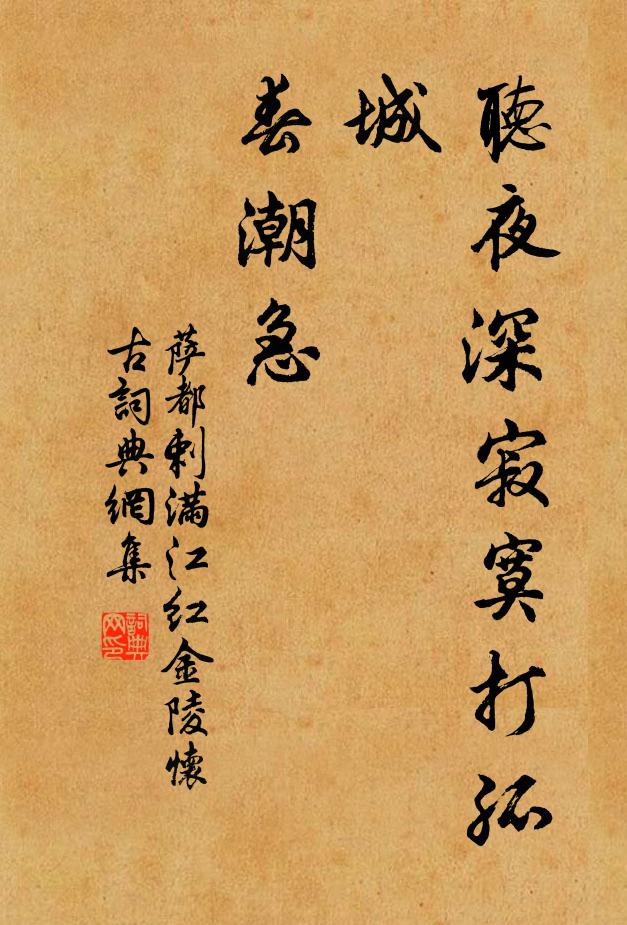 聽夜深寂寞打孤
城
春潮急
萨都刺滿江红金陵懷
古詞典網集
詞典
网印